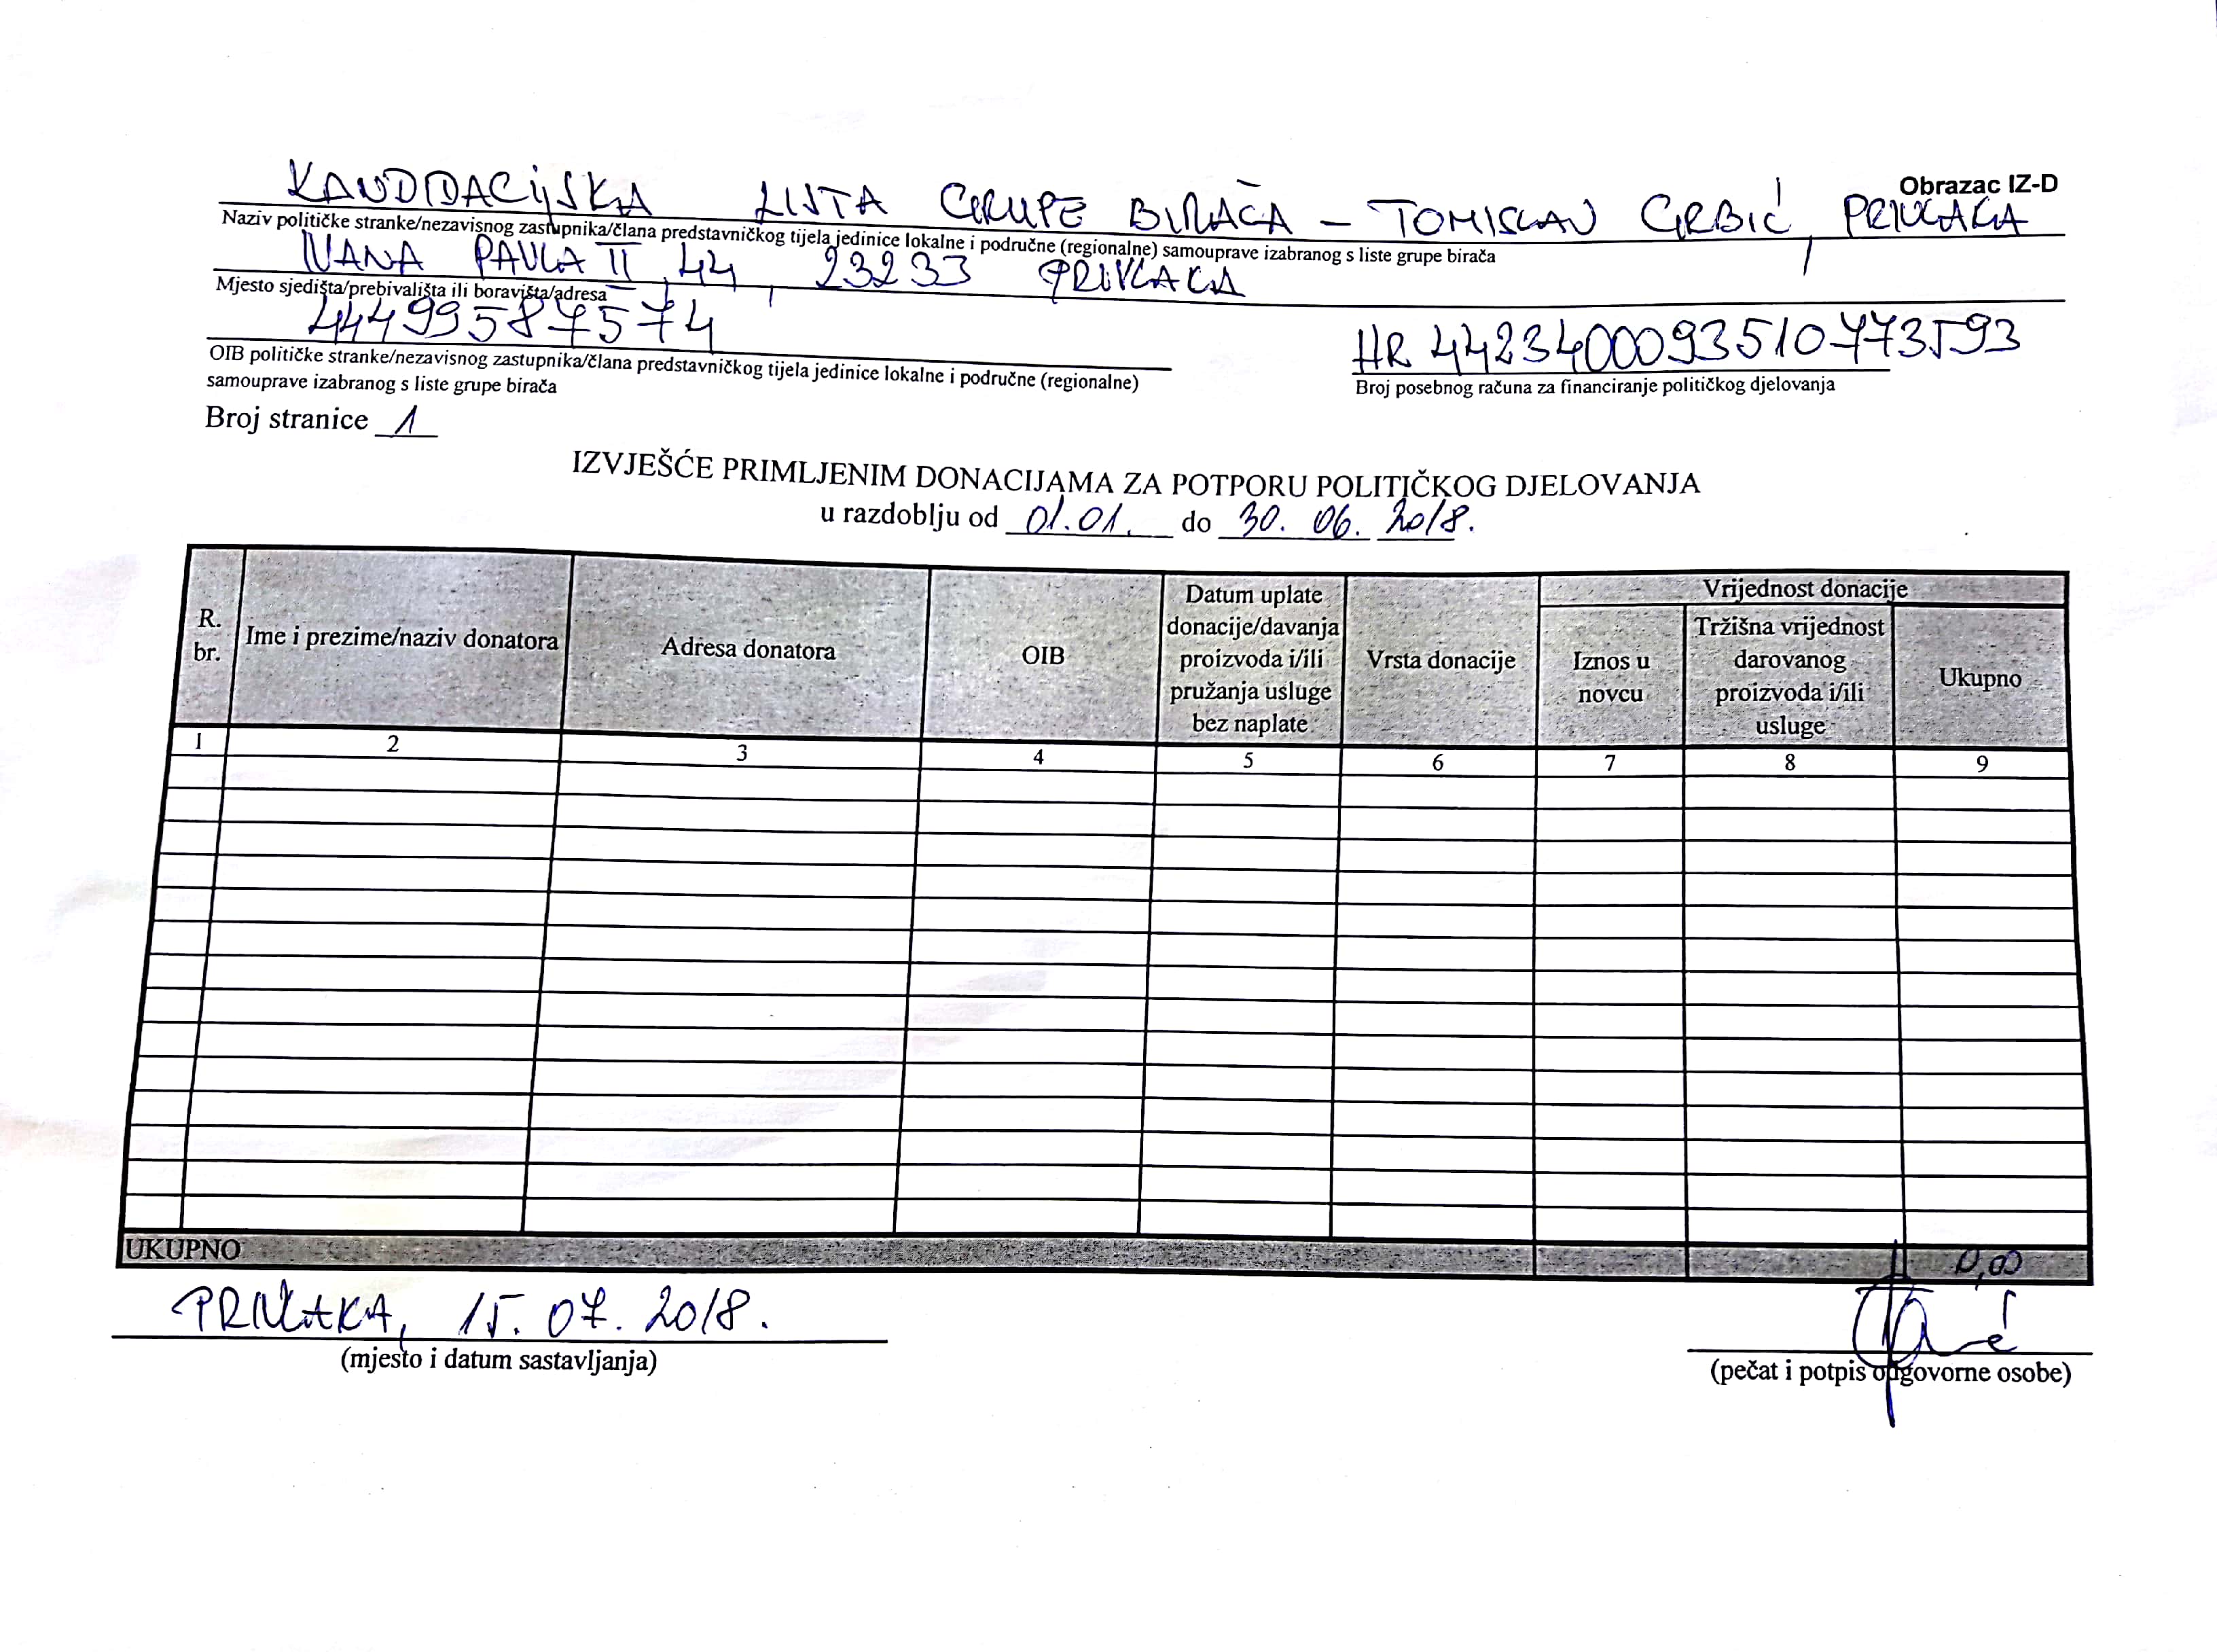 Obrazac IZ-D
KANDIDACIJSKA LISTA GRUPE BIRAČA – TOMISLAV GRBIĆ, PRIVLAKA
Naziv političke stranke/nezavisnog zastupnika/člana predstavničkog tijela jedinice lokalne i područne (regionalne) samouprave izabranog s liste grupe birača
IVANA PAVLA II 44, 23233 PRIVLAKA
Mjesto sjedišta/prebivališta ili boravišta/adresa
44499587574 HR 4423400093510773593
OIB političke stranke/nezavisnog zastupnika/člana predstavničkog tijela jedinice lokalne i područne (regionalne)
samouprave izabranog s liste grupe birača
Broj posebnog računa za financiranje političkog djelovanja
Broj stranice 1
IZVJEŠĆE PRIMLJENIM DONACIJAMA ZA POTPORU POLITIČKOG DJELOVANJA
u razdoblju od 01.01. do 30. 06. 2018.
R.
br.
Ime i prezime/naziv donatora
Adresa donatora
OIB
Datum uplate
donacije/davanja
proizvoda i/ili
pružanja usluge
bez naplate
Vrsta donacije
Vrijednost donacije
Iznos u
novcu
Tržišna vrijednost
darovanog
proizvoda i/ili
usluge
Ukupno
1 2 3 4 5 6 7 8 9
UKUPNO 0,00
PRIVLAKA, 15. 07. 2018.
(mjesto i datum sastavljanja)
(pečat i potpis odgovorne osobe)